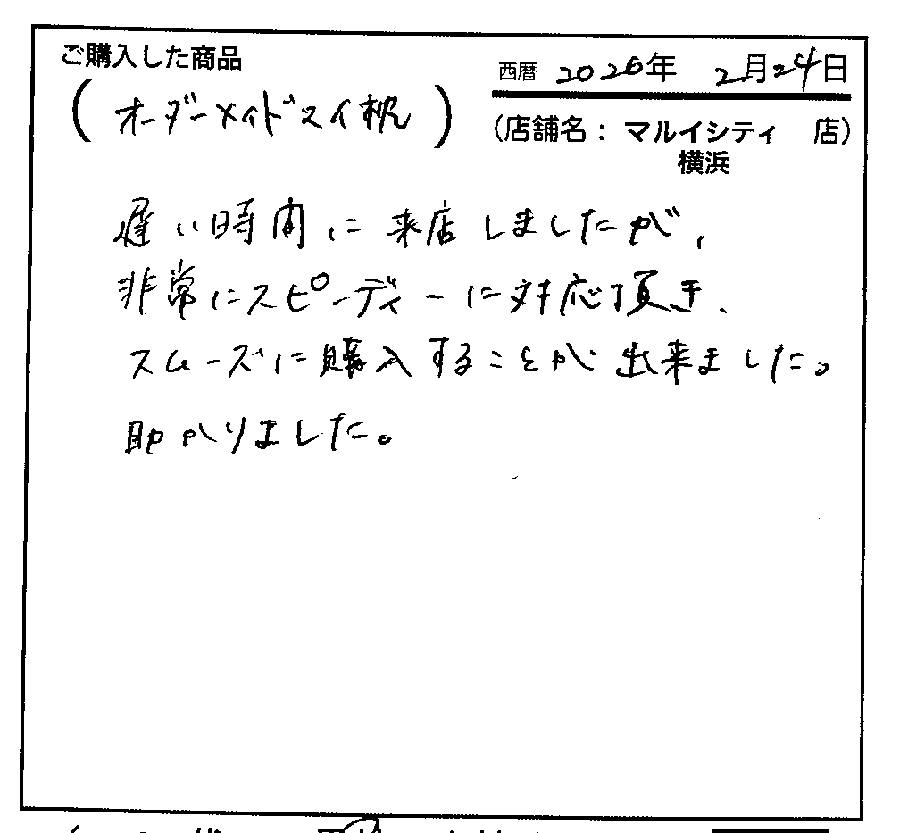 ご購入した商品
西暦 2026年 2月24日
(オーダーメイドスイ枕)
(店舗名: マルイシティ 店)
横浜
遅い時間に来店しましたが、
非常にスピーディーに対応頂き、
スムーズに購入することが出来ました。
助かりました。